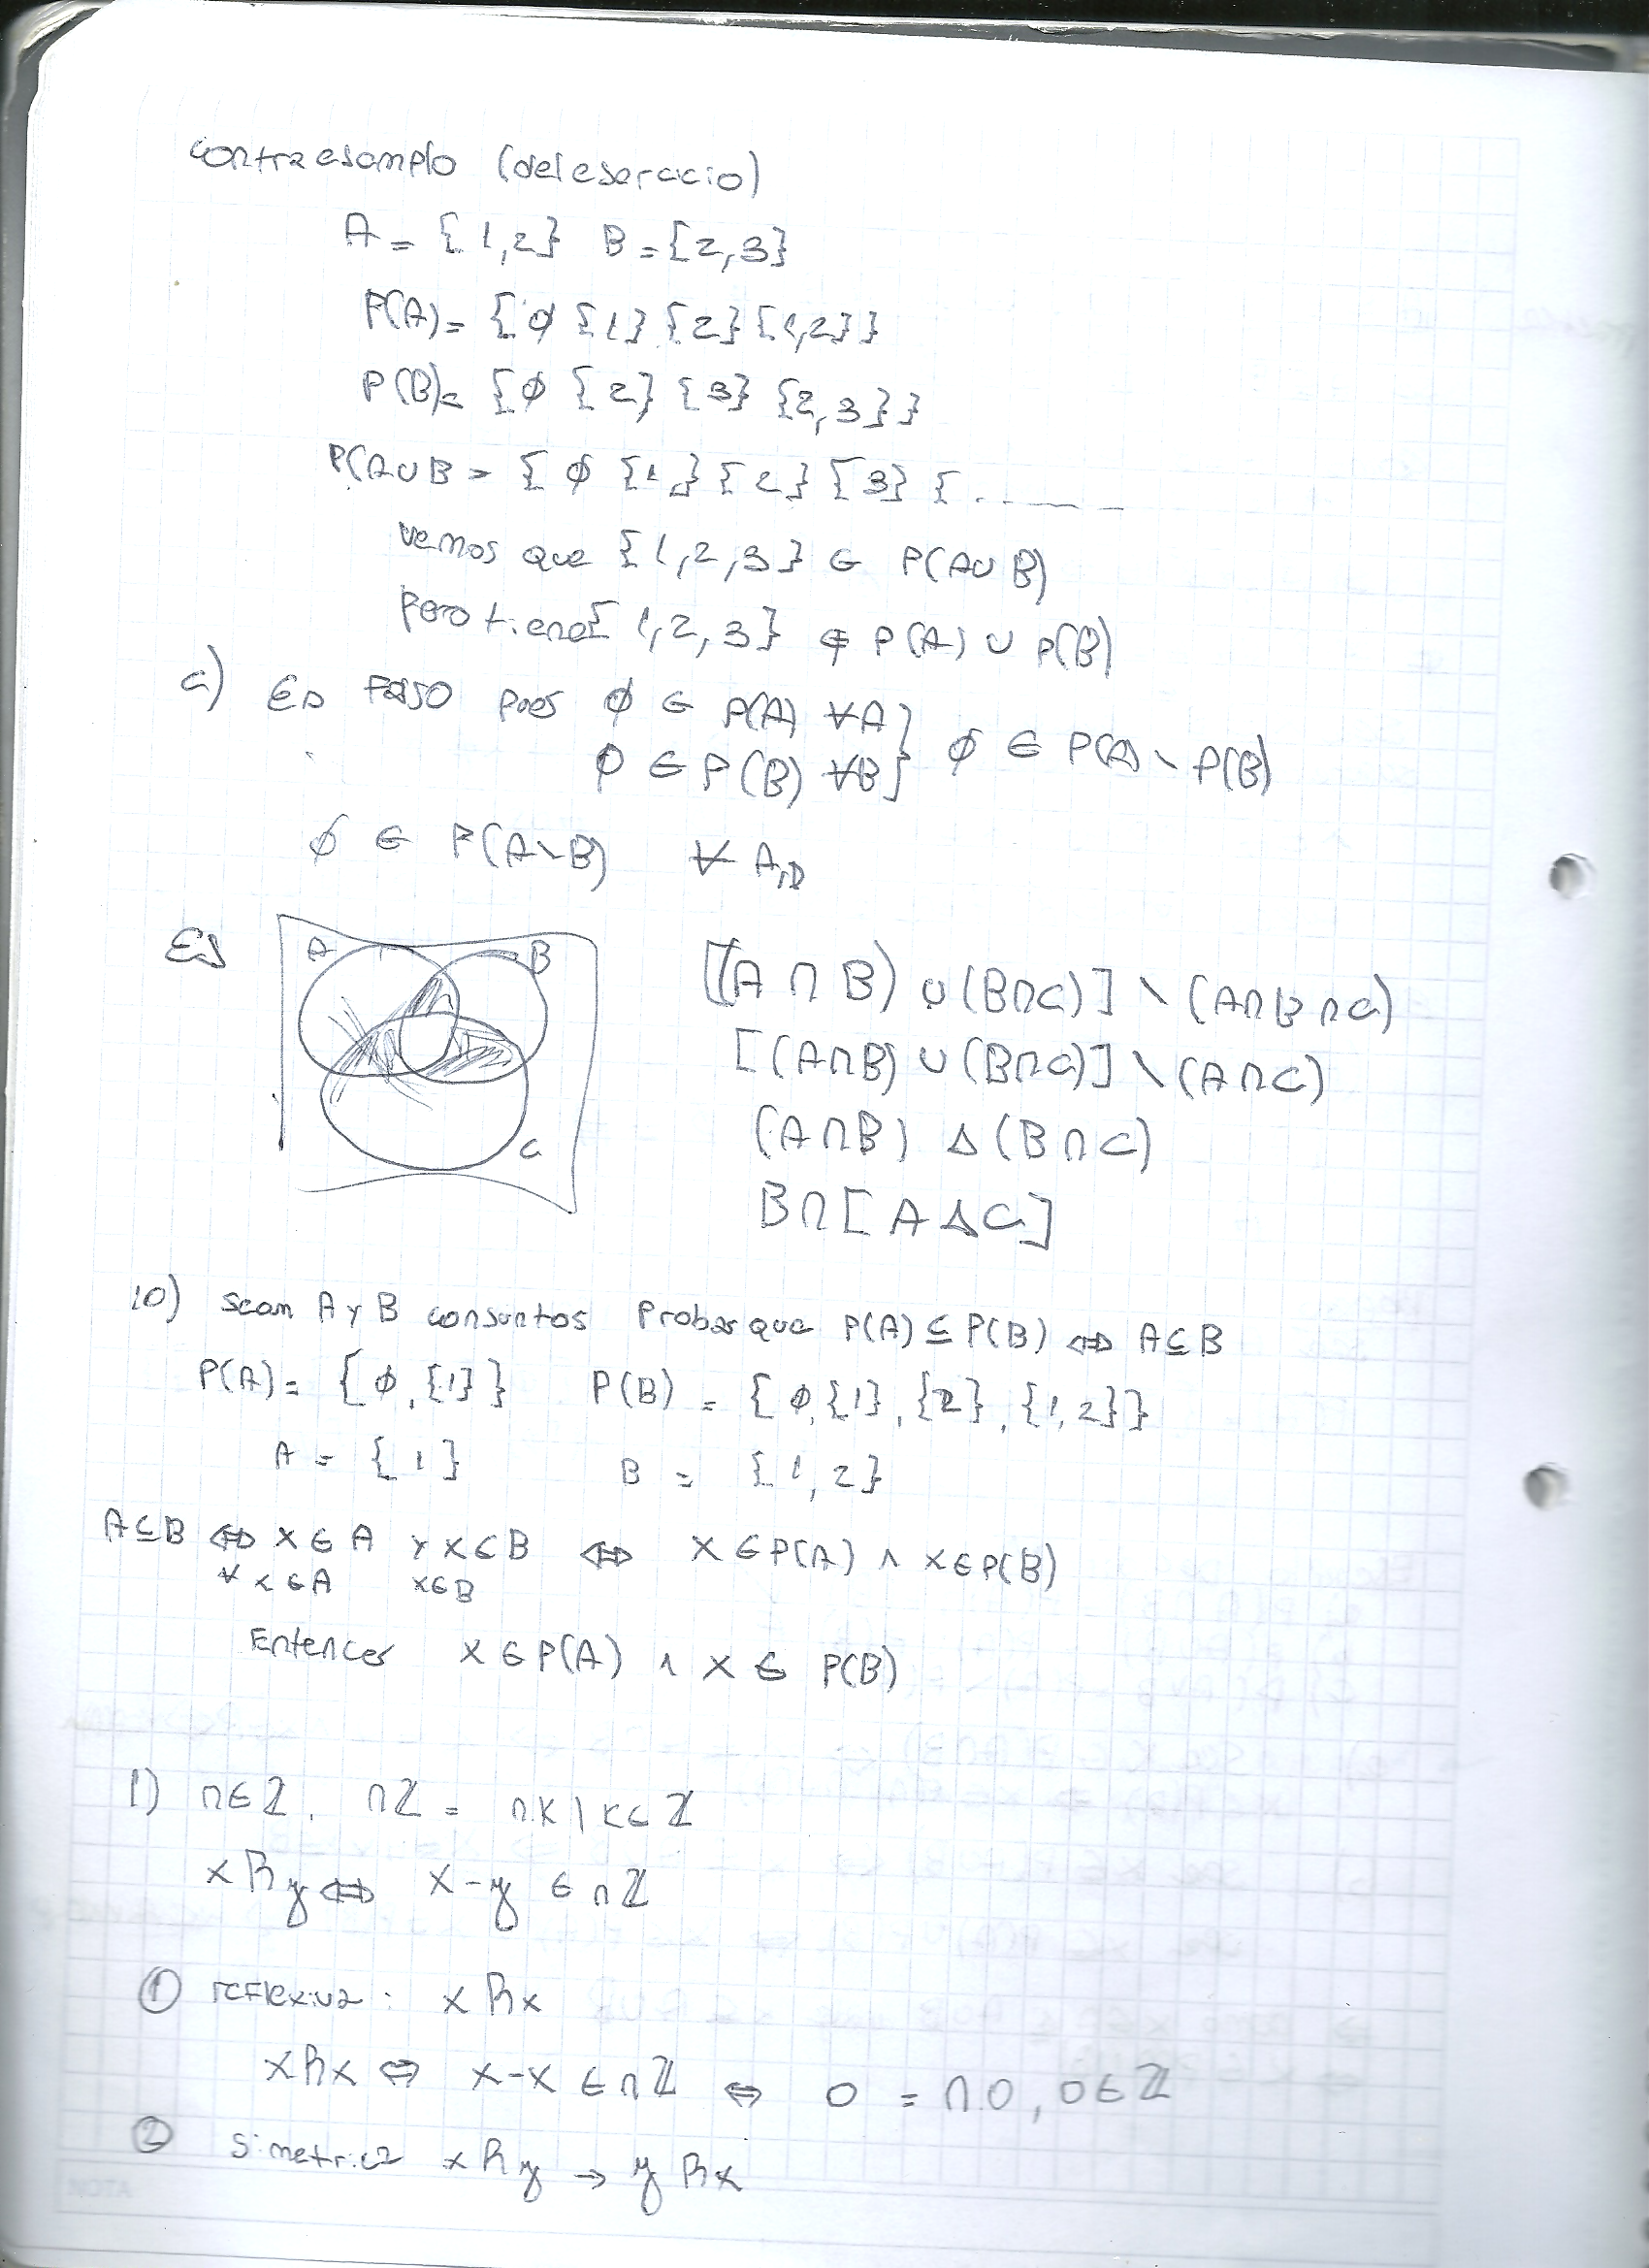 contraesamplo (del esercicio)
A = {1,2} B = {2,3}
P(A) = {∅ {1} {2} {1,2}}
P(B) = {∅ {2} {3} {2,3}}
P(A∪B = {∅ {1,} {2} {3} {......
vemos que {1,2,3} ∈ P(A∪B)
pero tiene {1,2,3} ∉ P(A) ∪ P(B)
c) Es falso pues ∅ ∈ P(A) ∀A } ∅ ∈ P(A) \ P(B)
∅ ∈ P(B) ∀B }
∅ ∈ P(A\B) ∀ A,B
EJ A B C
[(A ∩ B) ∪ (B∩C)] \ (A∩B∩C)
[(A∩B) ∪ (B∩C)] \ (A∩C)
(A∩B) Δ (B∩C)
B∩[A Δ C]
10) Sean A y B consuntos Probar que P(A) ⊆ P(B) ⇔ A⊆B
P(A) = {∅, {1}} P(B) = {∅, {1}, {2}, {1,2}}
A = {1} B = {1,2}
A⊆B ⇔ x∈A y x∈B ⇔ x∈P(A) ∧ x∈P(B)
∀ x∈A x∈B
Entonces x∈P(A) ∧ x∈ P(B)
1) n∈ℤ. nℤ = n.k | k∈ℤ
xRy ⇔ x-y ∈ nℤ
① reflexiva: xRx
xRx ⇔ x-x ∈ nℤ ⇔ 0 = n.0, 0∈ℤ
② simetrica xRy → yRx